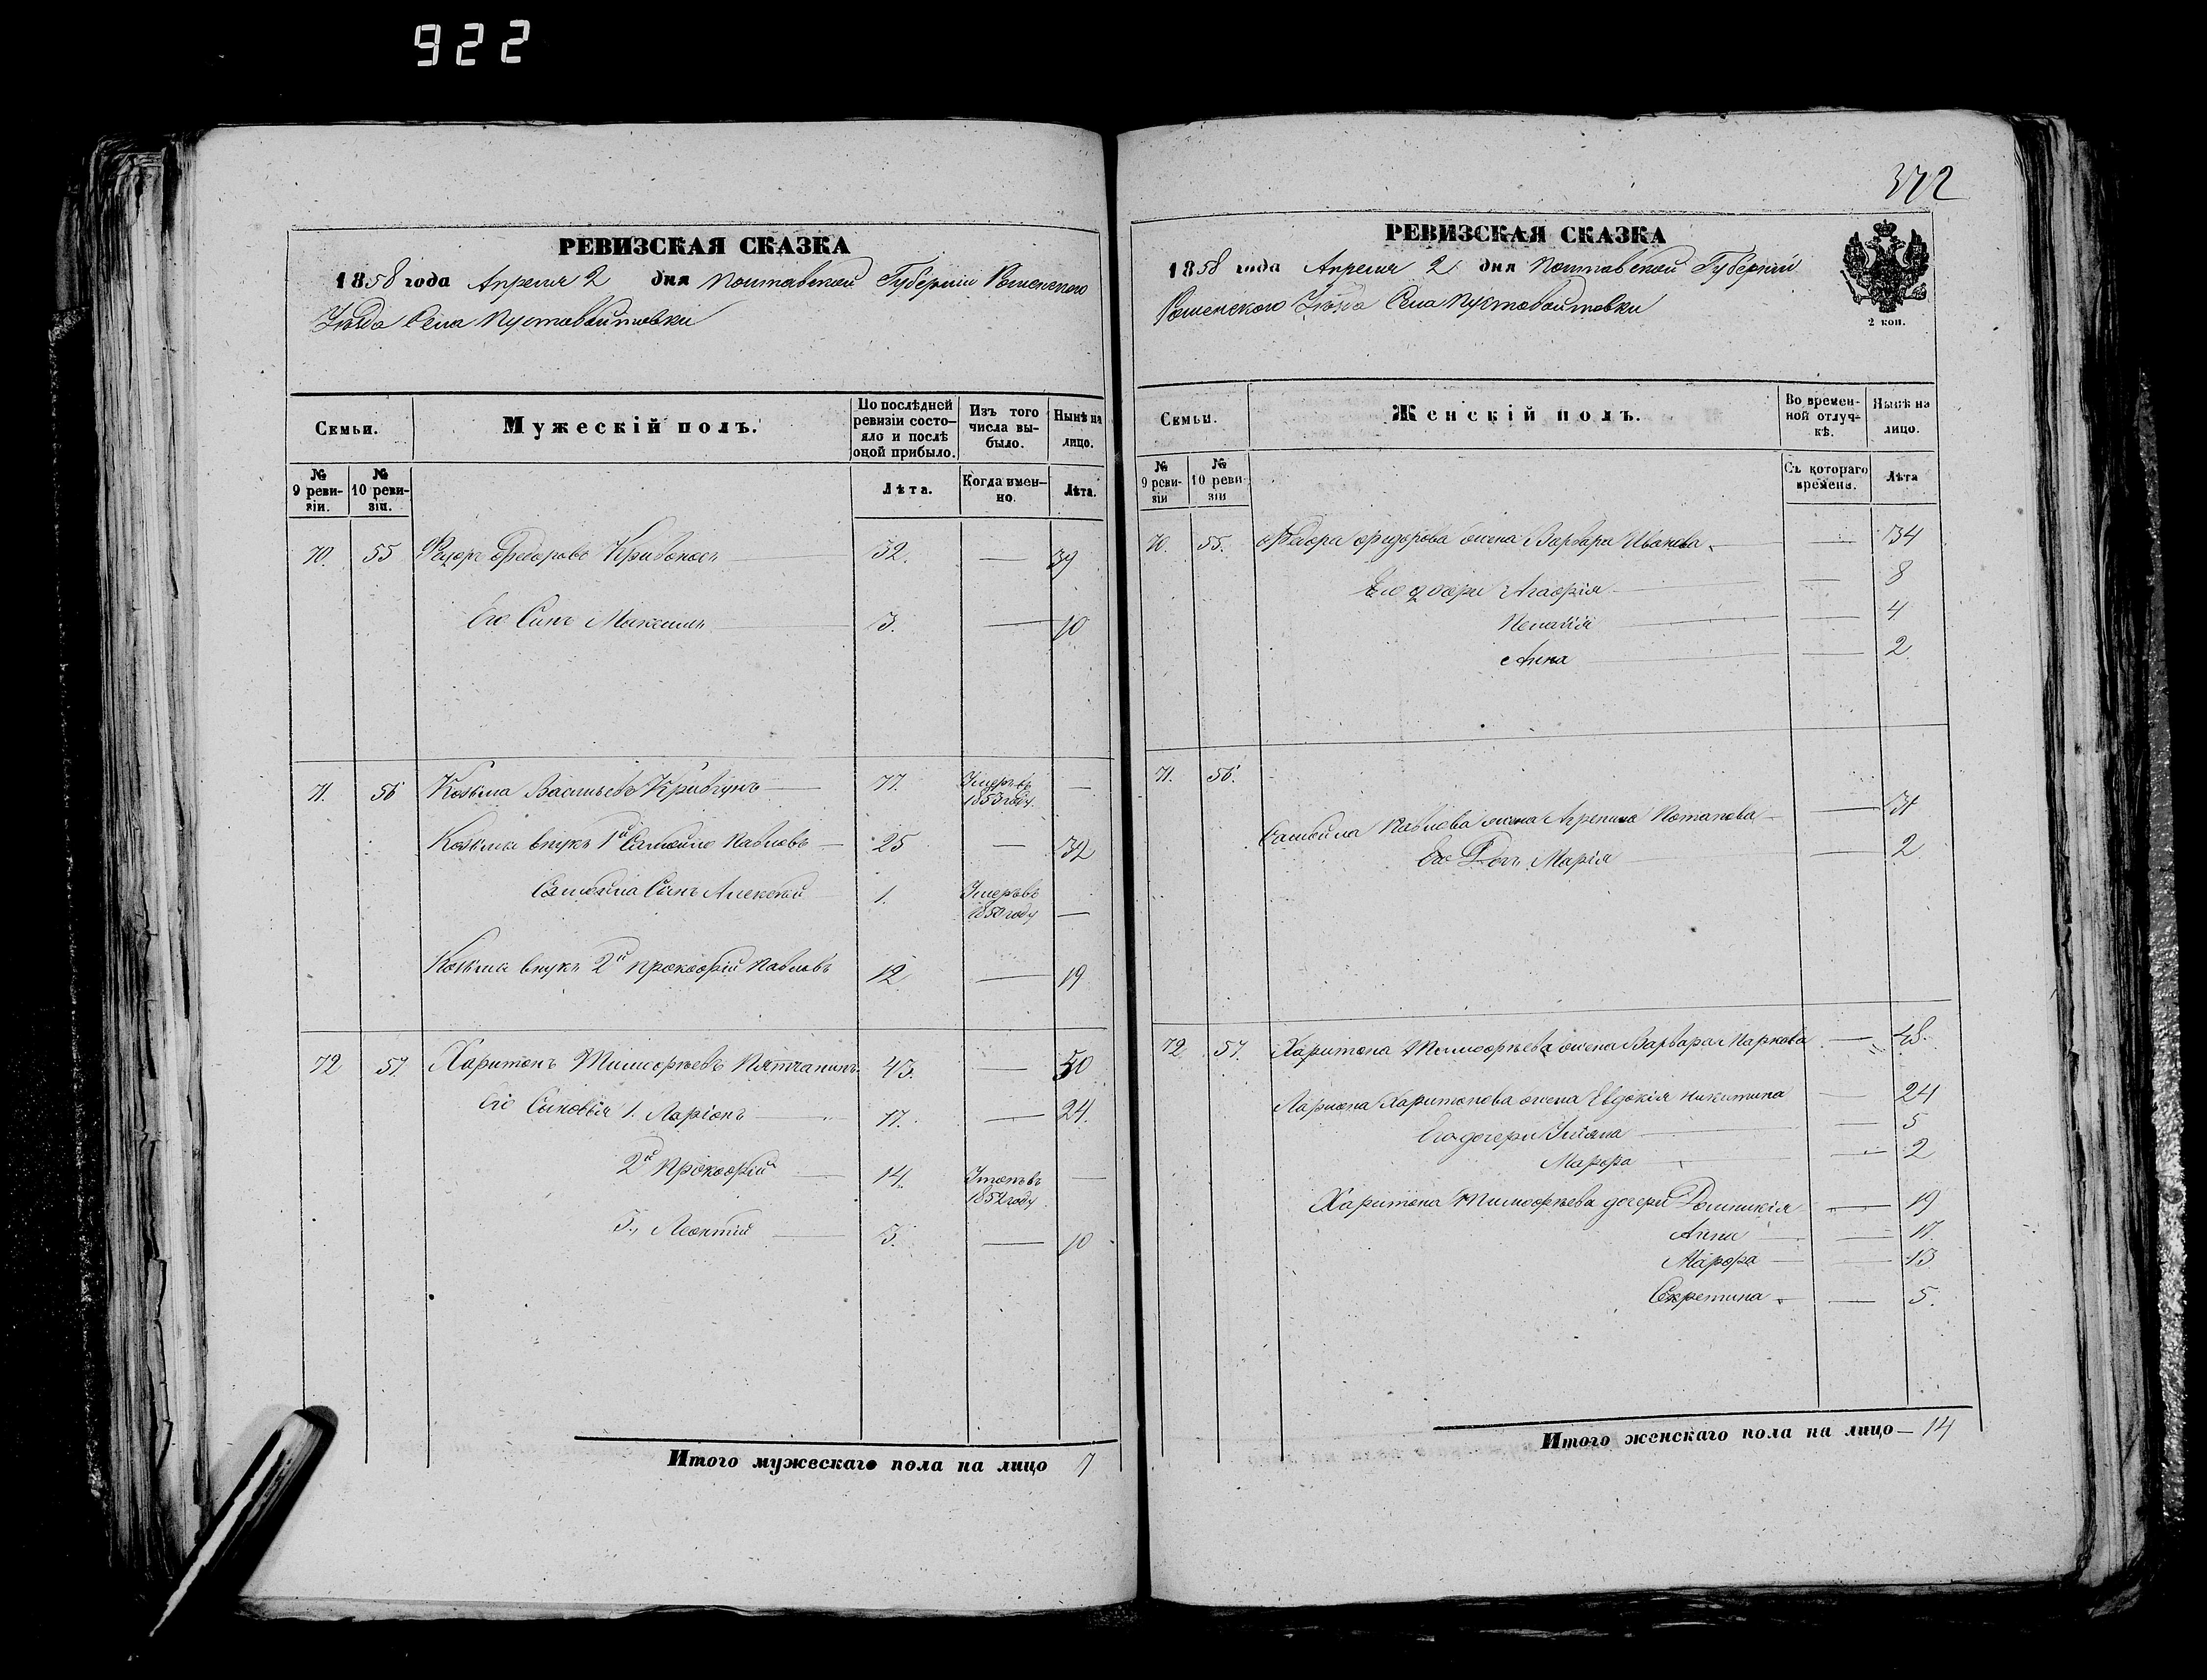 922
РЕВИЗСКАЯ СКАЗКА
1858 года Апреля 2 дня Полтавской Губернии Роменского
Уѣзда Села Пустовойтовки
Семьи.
Мужескій полъ.
По послѣдней ревизіи состояло и послѣ оной прибыло.
Изъ того числа выбыло.
Нынѣ на лицо.
№ 9 ревизіи.
№ 10 ревизіи.
Лѣта.
Когда именно.
Лѣта.
70. 55 Федоровъ Кривоносъ 32. — 39
Его Сынъ Максимъ 3. — 10
71. 56 Козьма Васильевъ Кривгунъ 77. Умеръ въ 1853 году —
Козьмы внукъ 1й Самойло Павловъ 25 — 32
Самойла Сынъ Алексѣй 1. Умеръ въ 1850 году —
Козьмы внукъ 2й Прокофій Павловъ 12 — 19
72 57 Харитонъ Тимофѣевъ 43. — 50
Его Сыновья 1. Ларіонъ 17. — 24.
2й Прокофій 14. 1852 году —
3, Леонтій 3. — 10
Итого мужескаго пола на лицо 7
372
РЕВИЗСКАЯ СКАЗКА
1858 года Апреля 2 дня Полтавской Губерніи
Роменского Уѣзда Села Пустовойтовки
2 коп.
Семьи.
Женскій полъ.
Во временной отлучкѣ.
Нынѣ на лицо.
№ 9 ревизіи
№ 10 ревизіи
Съ котораго времени.
Лѣта
70. 55. Федорова жена Варвара Иванова — 34
Его дочери Агафія — 8
Пелагія — 4
Анна — 2
71. 56.
Самойла Павлова жена Агрепина Потапова — 31
Его Дочь Марія — 2
72. 57. Харитона Тимофѣева жена Варвара Маркова — 48.
Лариона Харитонова жена Евдокія Никитина — 24
Его дочери Уліана — 5
Марфа — 2
Харитона Тимофѣева дочери Домникія — 19
Анна — 17.
Марфа — 13
— 5.
Итого женскаго пола на лицо — 14